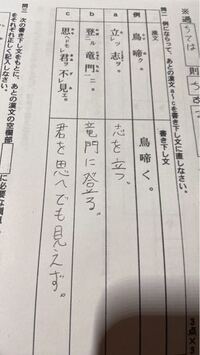 例にならって、あとの漢文a～cを書き下し文に直しなさい。
漢文
書き下し文
例
鳥啼ク。
鳥啼く。
a
立ツレ志ヲ。
志を立つ。
b
登ル二竜門一ニ。
竜門に登る。
c
思ヘドモレ君ヲ不レ見エ。
君を思へでも見えず。
次の書き下し文をもとに、あとの漢文の空欄部
をそれぞれ記入しなさい。
に必要な
3点×3